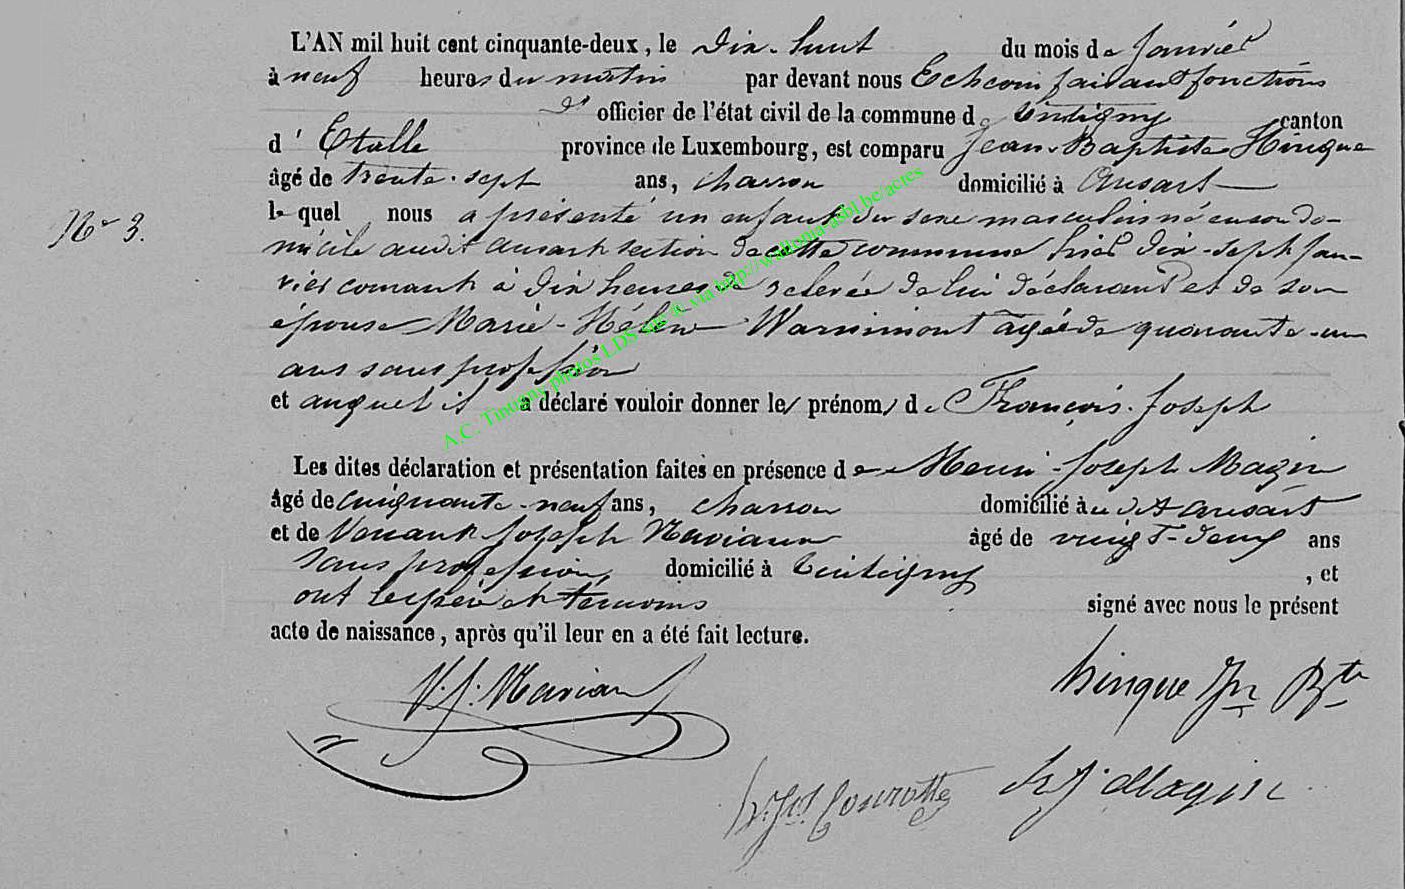 L'AN mil huit cent cinquante-deux, le Dix-huit du mois de Janvier
à neuf heures du matin par devant nous Echevin faisant fonctions
d' officier de l'état civil de la commune de Tintigny canton
d' Etalle province de Luxembourg, est comparu Jean-Baptiste Hinque
âgé de trente-sept ans, charron domicilié à Ansart
N° 3.
lequel nous a présenté un enfant du sexe masculin né en son do-
micile audit ansart section de cette commune hier dix-sept jan-
vier courant à dix heures de relevée de lui déclarant et de son
épouse Marie-Hélène Warnimont agée de quarante-un
ans sans profession
et auquel il a déclaré vouloir donner le/ prénom/ de François-Joseph
A.C. Tintigny photos LDS via http://wallonia-asbl.be/actes
Les dites déclaration et présentation faites en présence de Henri-Joseph Magin
âgé de cinquante-neuf ans, charron domicilié à udt ansart
et de Venant Joseph âgé de vingt-deux ans
sans profession domicilié à Tintigny, et
ont le père et témoins signé avec nous le présent
acte de naissance, après qu'il leur en a été fait lecture.
V. J.
hinque Jn Bte
h j Magin